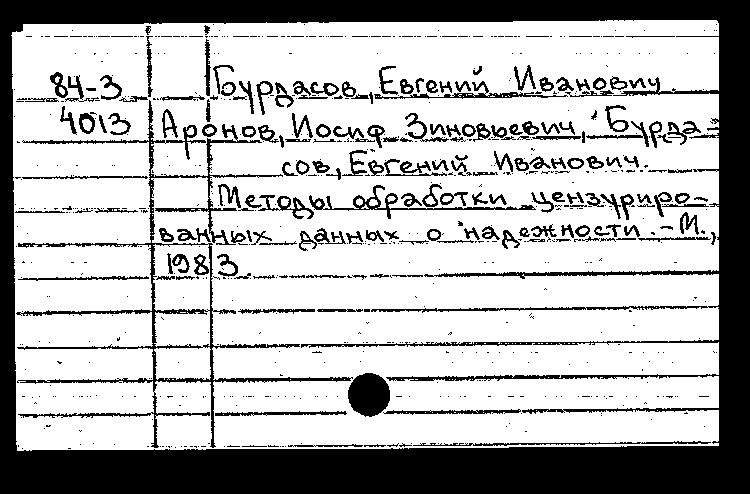 84-3 Бурдасов, Евгений Иванович.
4013 Аронов, Иосиф Зиновьевич, Бурда-
сов, Евгений Иванович.
Методы обработки цензуриро-
ванных данных о надежности. - М.,
1983.